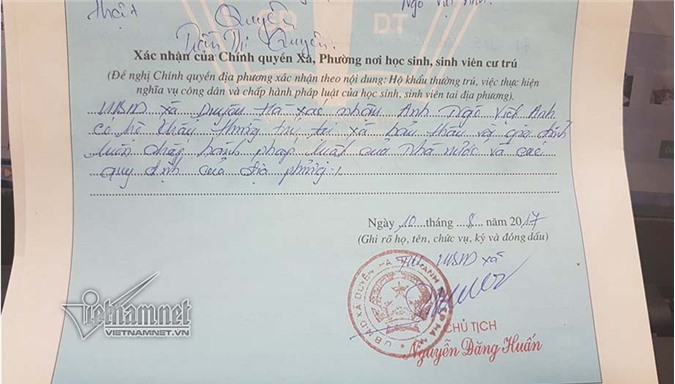 thật
Quyên
Trần Thị Quyên.
Xác nhận của Chính quyền Xã, Phường nơi học sinh, sinh viên cư trú
(Đề nghị Chính quyền địa phương xác nhận theo nội dung: Hộ khẩu thường trú, việc thực hiện
nghĩa vụ công dân và chấp hành pháp luật của học sinh, sinh viên tại địa phương).
UBND xã Duyên Hà xác nhận Anh Ngô Viết Anh
có hộ khẩu thường trú tại xã bản thân và gia đình
luôn chấp hành pháp luật của Nhà nước và các
quy định của địa phương.
Ngày 10 tháng 8 năm 2017
(Ghi rõ họ, tên, chức vụ, ký và đóng dấu)
TM UBND xã
U.B.N.D XÃ DUYÊN HÀ
CHỦ TỊCH
Nguyễn Đăng Huấn
vietnamnet
VIETNAMNET.VN